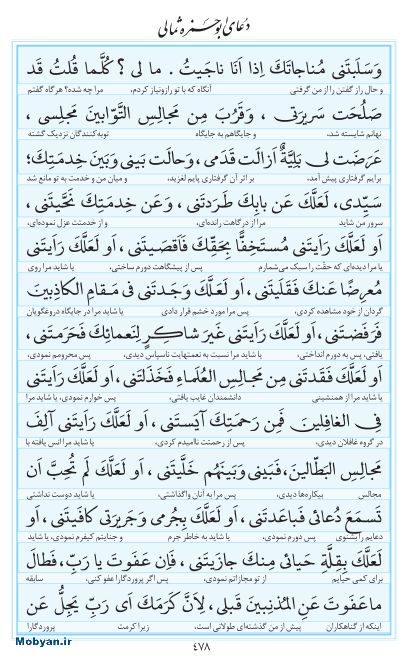 دعای ابوحمزه ثمالی
وَسَلَبتَنی مُناجاتَكَ اِذا اَنَا ناجَیتُ . ما لی ؟ كُلَّما قُلتُ قَد
و حال راز گفتن را از من گرفتی آنگاه که با تو رازونیاز کردم، مرا چه شده؟ هرگاه گفتم
صَلُحَت سَریرَتی ، وَقَرُبَ مِن مَجالِسِ التَّوّابینَ مَجلِسی ،
نهانم شایسته شد، و جایگاهم به جایگاه توبه‌کنندگان نزدیک گشته
عَرَضَت لی بَلِیَّةٌ اَزالَت قَدَمی ، وَحالَت بَینی وَبَینَ خِدمَتِكَ؛
برایم گرفتاری پیش آمد، بر اثر آن گرفتاری پایم لغزید، و میان من و خدمت به تو مانع شد
سَیِّدی، لَعَلَّكَ عَن بابِكَ طَرَدتَنی ، وَعَن خِدمَتِكَ نَحَّیتَنی ،
سرور من شاید مرا از درگاهت رانده‌ای، و از خدمتت عزل نموده‌ای،
اَو لَعَلَّكَ رَاَیتَنی مُستَخِفًّا بِحَقِّكَ فَاَقصَیتَنی ، اَو لَعَلَّكَ رَاَیتَنی
یا مرا دیده‌ای که حقّت را سبک می‌شمارم پس از پیشگاهت دورم ساختی، یا شاید مرا روی
مُعرِضًا عَنكَ فَقَلَیتَنی، اَو لَعَلَّكَ وَجَدتَنی فی مَقامِ الكاذِبینَ
گردان از خود مشاهده کردی، پس مرا مورد خشم قرار دادی یا شاید مرا در جایگاه دروغگویان
فَرَفَضتَنی، اَو لَعَلَّكَ رَاَیتَنی غَیرَ شاكِرٍ لِنَعمائِكَ فَحَرَمتَنی،
یافتی، پس به دورم انداختی، یا شاید مرا نسبت به نعمتهایت ناسپاس دیدی، پس محرومم نمودی،
اَو لَعَلَّكَ فَقَدتَنی مِن مَجالِسِ العُلَماءِ فَخَذَلتَنی، اَو لَعَلَّكَ رَاَیتَنی
یا شاید مرا از همنشینی دانشمندان غایب یافتی، پس خوارم نمودی، یا شاید مرا
فِی الغافِلینَ فَمِن رَحمَتِكَ آیَستَنی ، اَو لَعَلَّكَ رَاَیتَنی آلِفَ
در گروه غافلان دیدی، پس از رحمتت ناامیدم کردی، یا شاید مرا انس یافته با
مَجالِسِ البَطّالینَ، فَبَینی وَبَینَهُم خَلَّیتَنی ، اَو لَعَلَّكَ لَم تُحِبَّ اَن
مجالس بیکاره‌ها دیدی، پس مرا به آنان واگذاشتی، یا شاید دوست نداشتی
تَسمَعَ دُعائی فَباعَدتَنی ، اَو لَعَلَّكَ بِجُرمی وَجَریرَتی كافَیتَنی ، اَو
دعایم رابشنوی پس دورم نمودی، یا شاید به خاطر جرم و جنایتم کیفرم نمودی، یا شاید
لَعَلَّكَ بِقِلَّةِ حَیائی مِنكَ جازَیتَنی ، فَاِن عَفَوتَ یا رَبِّ، فَطالَ
برای کمی حیایم از تو مجازاتم نمودی، پس اگر پروردگارا عفو کنی، سابقه
ما عَفَوتَ عَنِ المُذنِبینَ قَبلی ، لِاَنَّ كَرَمَكَ اَی رَبِّ یَجِلُّ عَن
اینکه از گناهکاران پیش از من گذشته‌ای طولانی است، زیرا کرمت پروردگارا
۴۷۸
Mobyan.ir